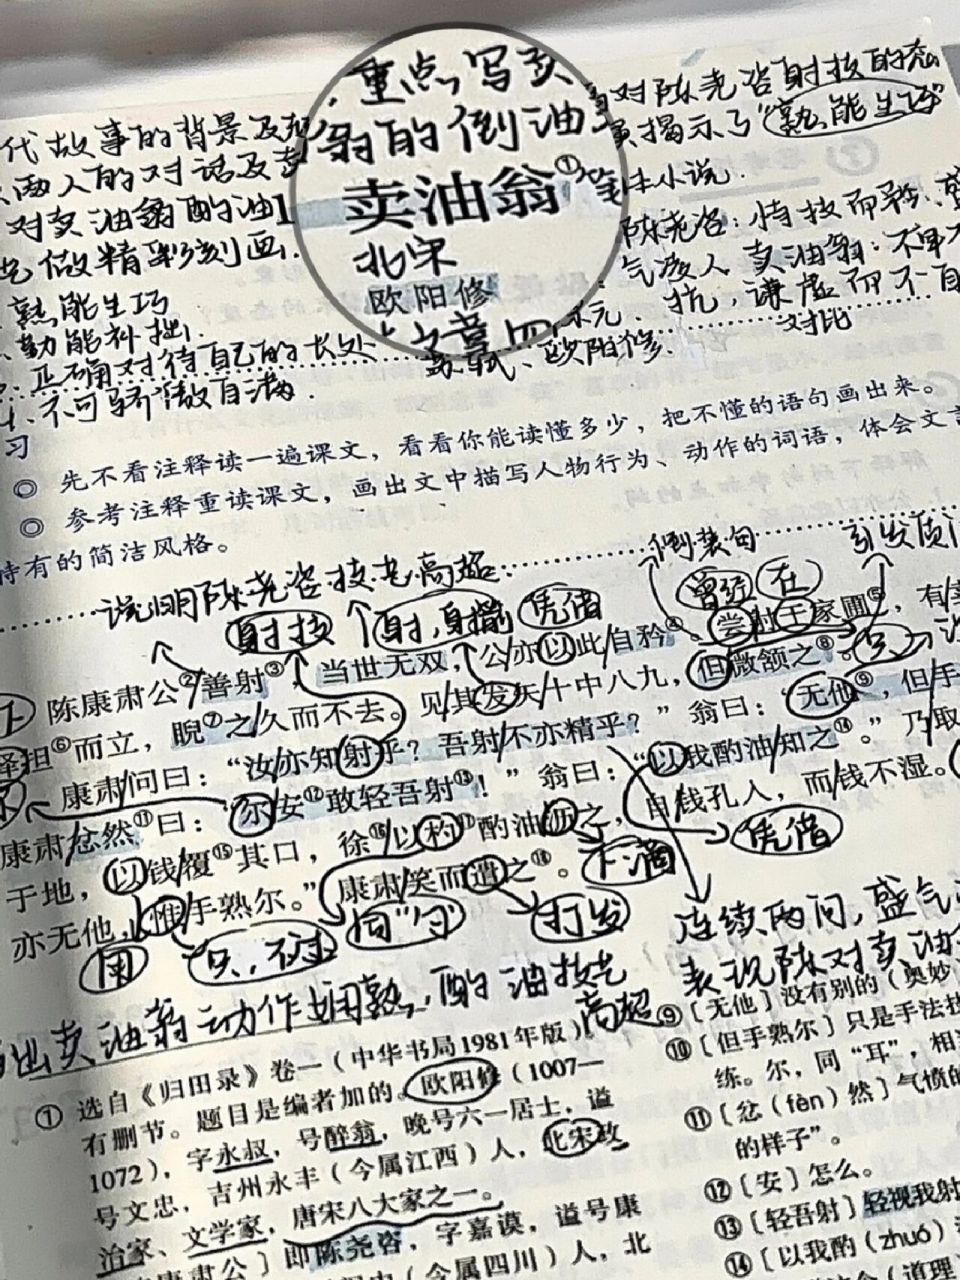 重点写
对陈尧咨射技的
代故事的背景及
翁的倒油
揭示了“熟能生巧”
两人的对话及
卖油翁①
笔体小说.
对卖油翁酌油
北宋
陈尧咨:恃技而骄、盛
做精彩刻画.
欧阳修
气凌人 卖油翁:不卑不
熟能生巧
抗,谦虚而不自
勤能补拙.
对比
正确对待自己的长处
苏轼、欧阳修.
不可骄傲自满.
习
◎ 先不看注释读一遍课文,看看你能读懂多少,把不懂的语句画出来。
◎ 参考注释重读课文,画出文中描写人物行为、动作的词语,体会文言
特有的简洁风格。
倒装句
引发
说明陈尧咨技艺高超
曾经 在
射技 射,射箭 凭借
陈康肃公②善射③,当世无双,公亦以此自矜④。尝射于家圃⑤,有
担⑥而立,睨⑦之久而不去。见其发矢十中八九,但微颔之⑧。
只
康肃问曰:“汝亦知射乎?吾射不亦精乎?”翁曰:“无他⑨,但手
康肃忿然⑪曰:“尔安⑫敢轻吾射⑬!”翁曰:“以我酌油知之⑭。”乃取
于地,以钱覆⑮其口,徐⑯以杓⑰酌油沥之,自钱孔入,而钱不湿。
亦无他,惟手熟尔。”康肃笑而遣之⑱。
下滴
凭借
用 只,不过 同“勺” 打发
连续两问,盛气
表现陈对卖油
出卖油翁动作娴熟,酌油技艺
高超
① 选自《归田录》卷一(中华书局1981年版)
有删节。题目是编者加的。欧阳修(1007—
1072),字永叔,号醉翁,晚号六一居士,谥
号文忠,吉州永丰(今属江西)人,北宋政
治家、文学家,唐宋八大家之一。
康肃公〕即陈尧咨,字嘉谟,谥号康
(今属四川)人,北
⑨〔无他〕没有别的(奥妙
⑩〔但手熟尔〕只是手法技
练。尔,同“耳”,相
⑪〔忿(fèn)然〕气愤的
的样子”。
⑫〔安〕怎么。
⑬〔轻吾射〕轻视我射
⑭〔以我酌(zhuó)
(道理